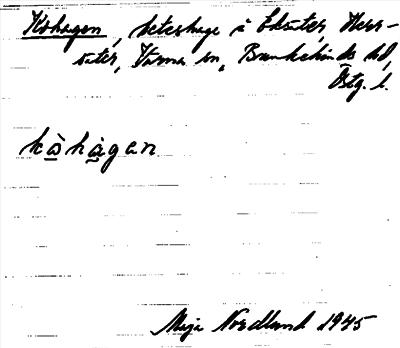 Kohagen, beteshage å Edsäter, Herr-
säter, Värna sn, Bankekinds hd,
Östg. l.
kò̲hà̲gen
Maja Nordlund 1945